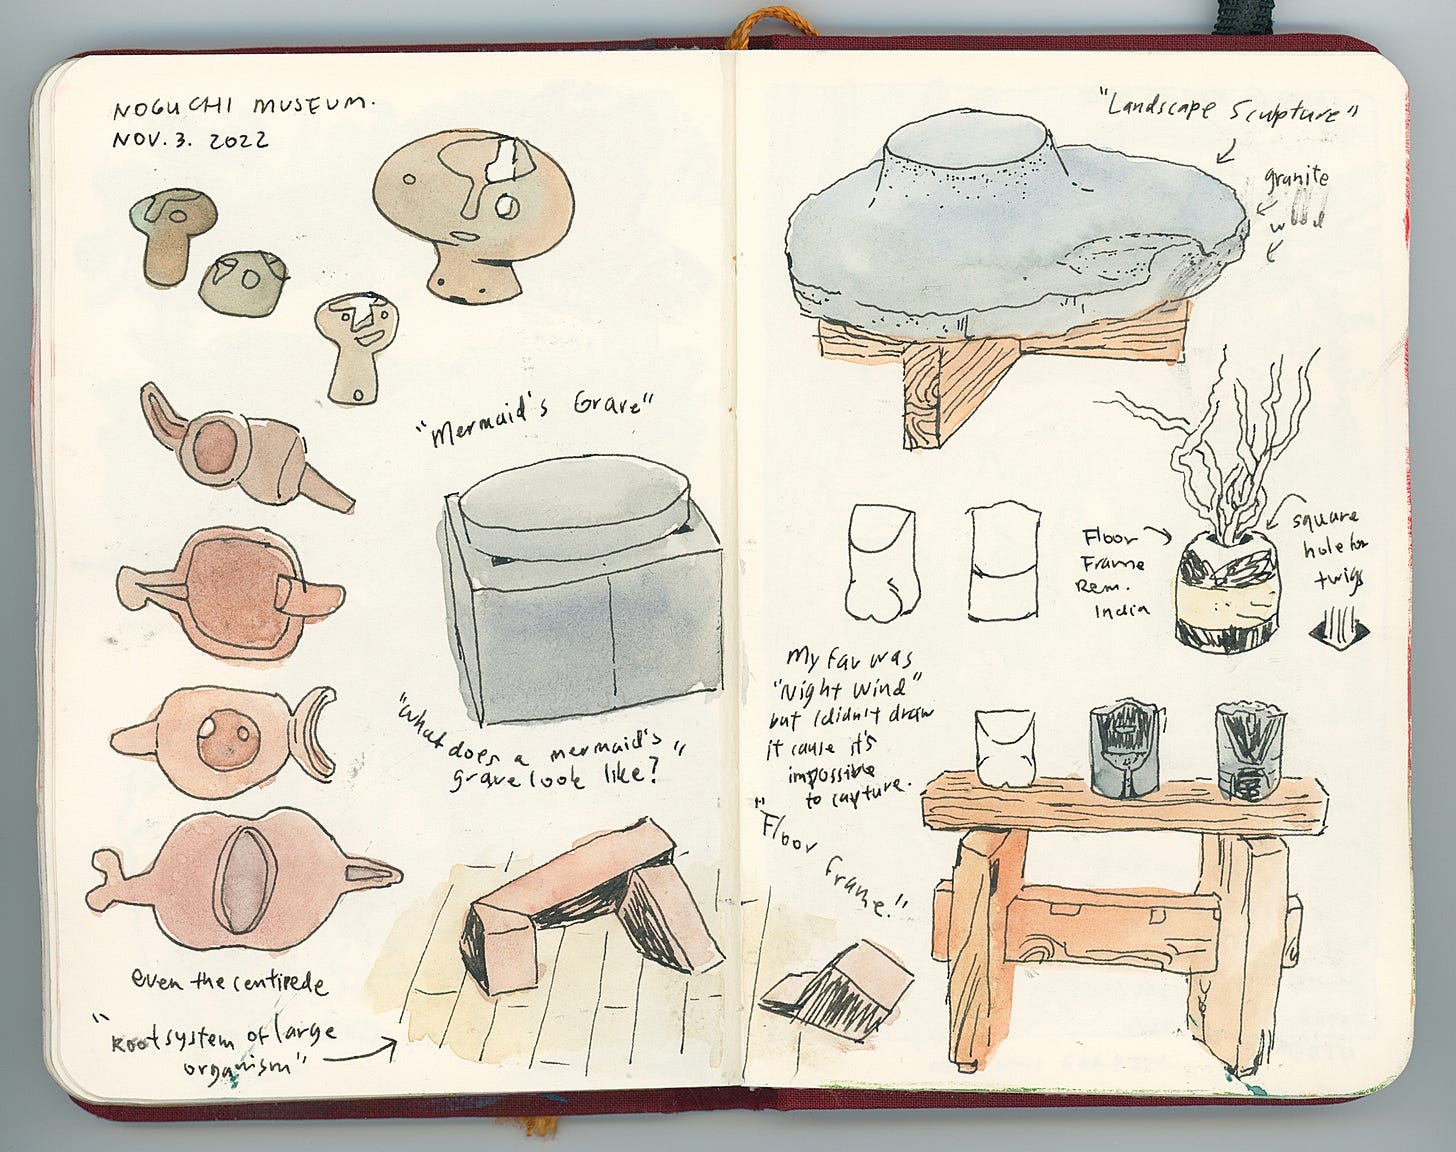 NOGUCHI MUSEUM.
NOV. 3. 2022
"Mermaid's Grave"
"what does a mermaid's
grave look like?"
even the centipede
"Root system of large
organism"
"Landscape Sculpture"
granite
Floor
Frame
Rem.
India
square
hole for
twigs
My fav was
"Night Wind"
but I didn't draw
it cause it's
impossible
to capture.
"Floor Frame."